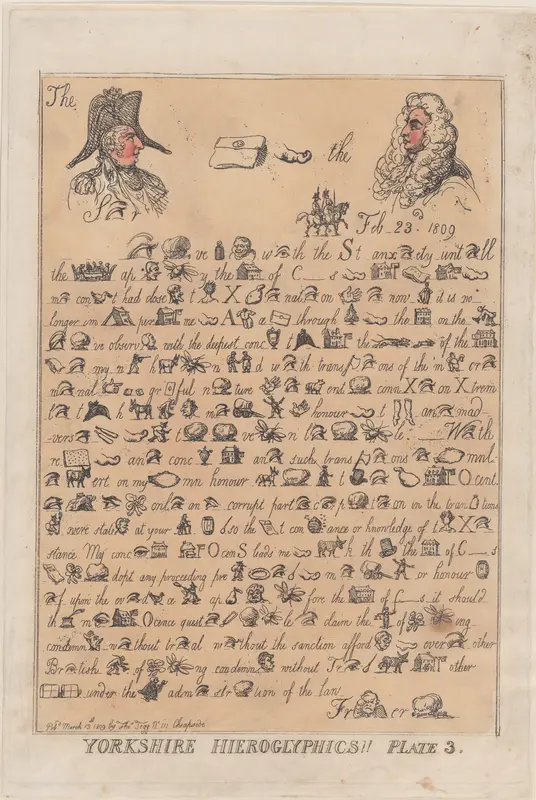 The the
Feb 23d 1809
ve w th the St anx ety unt ll
the ap y the of C__s
m con t had close t X nat on now it is no
longer im per me A a through the on the
ve observ with the deepest conc t the of the
my n h n d w th trans ons of the m or
m nal gr ful n ture end conn X on X trem
t h m honour t and mad
vers t ve n t le With
re and conc and such trans ons mil
ert on my own honour t Ocent
onl an corrupt part c p t on in the tran tions
were stat at your so the t con ance or knowledge of t X
stance My conc OcenS leads me h th the of C__s
dopt any proceeding pre d m or honour
f upon the ov d ce ap fore the of C__s it should
th m Ocence quest le claim the of ing
condemn without tr al without the sanction afford over other
Br tish of ng condemn without Tr l other
under the adm str tion of the Law
Fr er
Pubd March 12th 1809 by Thos Tegg No 111 Cheapside
YORKSHIRE HIEROGLYPHICS!! PLATE 3.